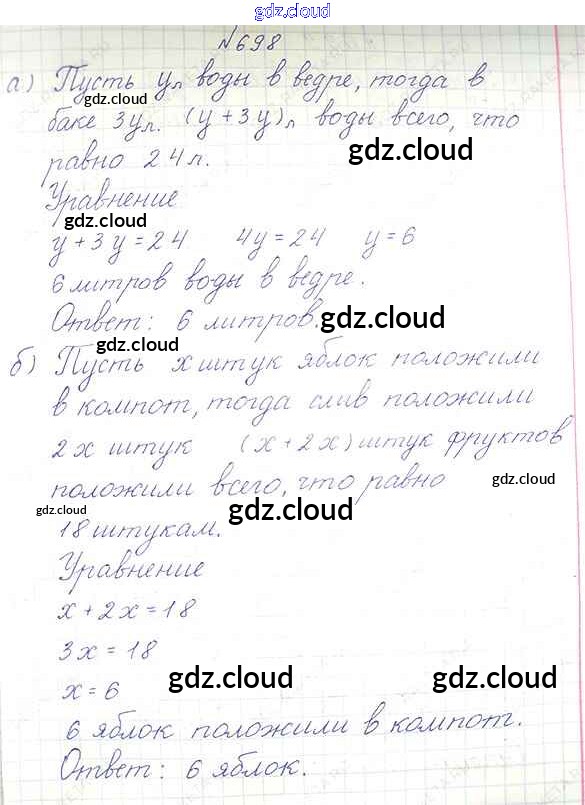 gdz.cloud
№698
а) Пусть y л воды в ведре, тогда в
gdz.cloud
баке 3y л. (y + 3y) л воды всего, что
gdz.cloud
равно 24 л.
Уравнение
gdz.cloud
y + 3y = 24 4y = 24 y = 6
6 литров воды в ведре.
Ответ: 6 литров.
gdz.cloud
gdz.cloud
б) Пусть x штук яблок положили
в компот, тогда слив положили
2x штук (x + 2x) штук фруктов
положили всего, что равно
gdz.cloud
gdz.cloud gdz.cloud
18 штукам.
Уравнение
x + 2x = 18
3x = 18
x = 6
gdz.cloud gdz.cloud
6 яблок положили в компот.
Ответ: 6 яблок.